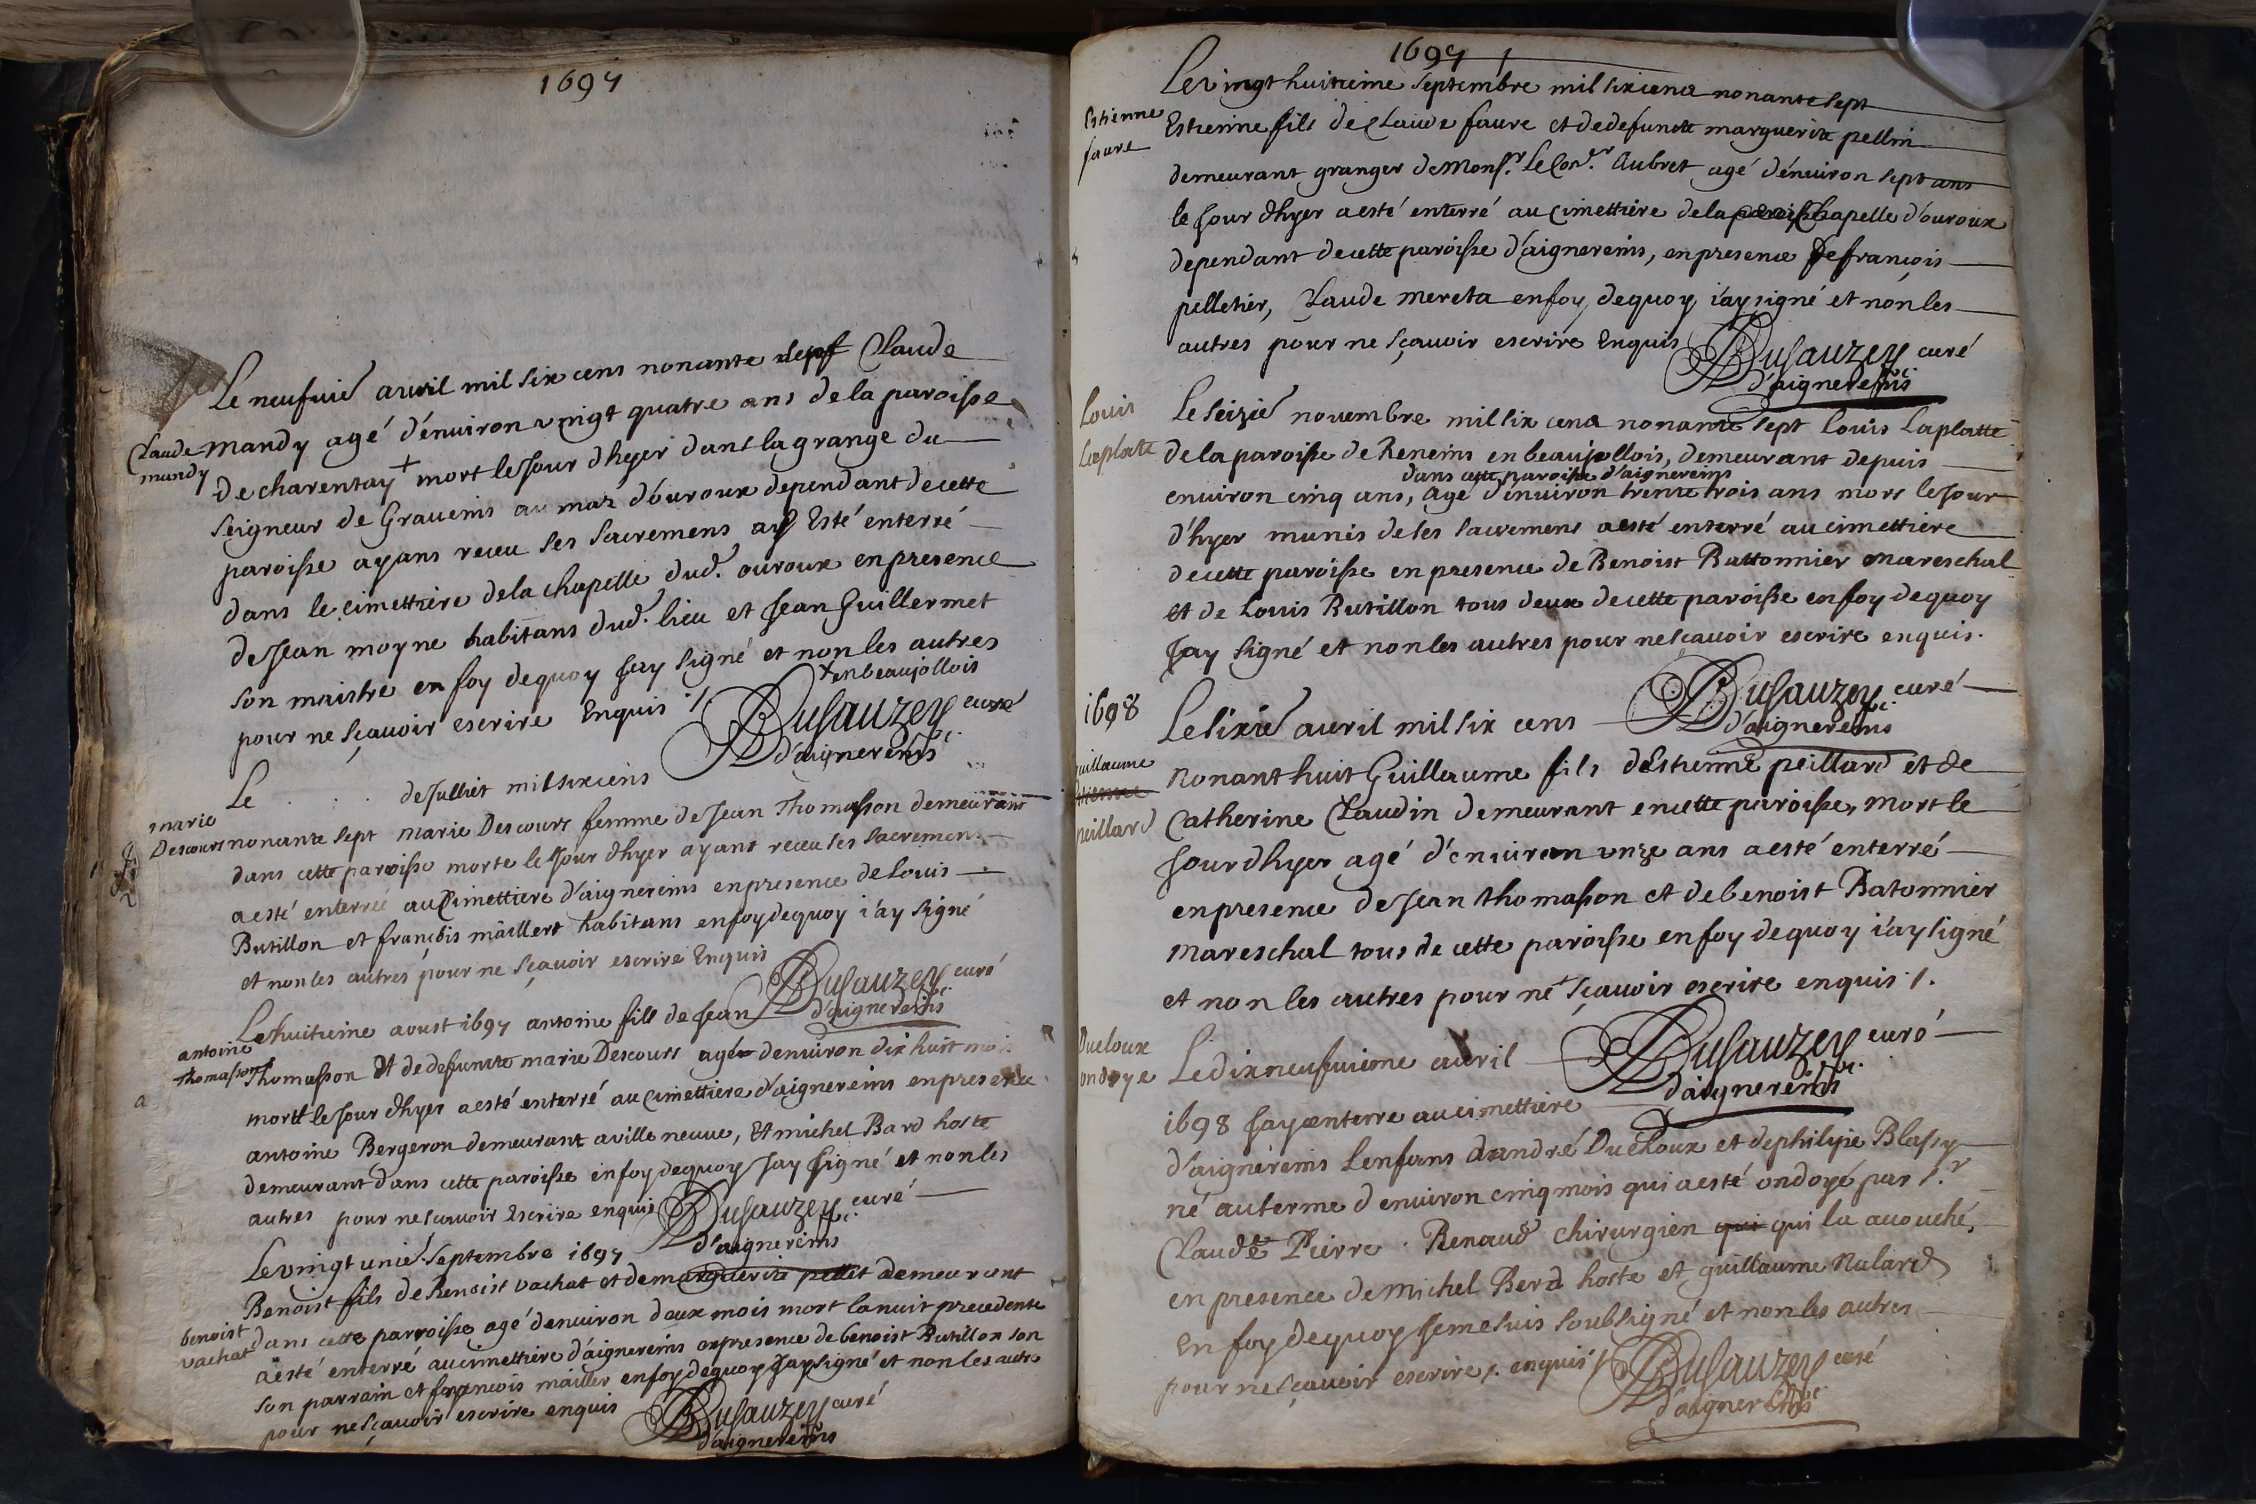 1697
Le neufuié auril mil six cens nonante sept Claude
Claude mandy
mandy agé d'énuiron vingt quatre ans de la paroisse
de charentay + mort le Jour dhyer dans la grange du
seigneur de Grauenis au maz d'ouroux dependant de cette
paroisse ayans receu ses sacremens a Esté enterré
dans le cimettiere de la chapelle dud. ouroux en presence
de Jean moyne habitans dud. lieu et Jean Guillermet
son maistre en foy dequoy Jay signé et non les autres
+ en beaujollois
pour ne sçauoir escrire Enquis /
Dusauzey curé
d'aignereins
Le . . . de Julliet mil sixcens
marie Descours
nonante sept marie Descours femme de Jean Thomasson demeurant
dans cette paroisse morte le Jour dhyer ayant receu ses sacremens
a esté enterrée au Cimettiere d'aignereins en presence de Louis
Butillon et françois maillert habitans en foy dequoy i'ay signé
et non les autres pour ne sçauoir escrire Enquis
Dusauzey curé
d'aignereins
Le huitieme aoust 1697 antoine fils de Jean
antoine Thomasson
Thomasson Et de defuncte marie Descours agé denuiron dix huit mois
mort le Jour dhyer a esté enterré au cimettiere d'aignereins en presence
antoine Bergeron demeurant a villeneuue, Et michel Bard hoste
demeurant dans cette paroisse en foy dequoy Jay signé et non les
autres pour ne scauoir Escrire enquis
Dusauzey curé
d'aignereins
Le vingt unié septembre 1697
Benoist fils de Benoist vachat et de marguerite pellet demeurant
benoist vachat
dans cette parroisse agé denuiron deux mois mort la nuit precedente
a esté enterré au cimettiere d'aignereins en presence de benoist Butillon son
son parrain et françois mailler en foy dequoy Jay signé et non les autres
pour ne sçauoir escrire enquis
Dusauzey curé
d'aignereins
1697
Le vingt huitieme septembre mil six cens nonante sept
Estienne faure
Estienne fils de Claude faure et de defuncte marguerite pellin
demeurant granger de Monsr. Le Conr. Aubret agé d'énuiron sept ans
le Jour dhyer a esté enterré au cimettiere de la Chapelle d'ouroux
dependant de cette paroisse d'aignereins, en presence de françois
pelletier, Claude mereta en foy dequoy i'ay signé et non les
autres pour ne sçauoir escrire Enquis
Dusauzey curé
d'aignereins
Louis Laplate
Le seizié nouembre mil six cens nonante sept Louis Laplatte
de la paroisse de Reneins en beaujollois, demeurant depuis
dans cette paroisse d'aignereins
enuiron cinq ans, Agé d'énuiron trente trois ans mors le Jour
d'hyer munis de ses sacremens a esté enterré au cimettiere
de cette paroisse en presence de Benoist Battonnier mareschal
et de Louis Butillon tous deux de cette paroisse en foy dequoy
Jay signé et non les autres pour ne scauoir escrire enquis.
Dusauzey curé
d'aignereins
1698
Le sixié auril mil six cens
guillaume peillard
nonant huit Guillaume fils dEstienne peillard et de
Catherine Claudin demeurant en cette paroisse, mort le
Jour dhyer agé d'enuiron unze ans a esté enterré
en presence de Jean thomasson et de benoist Batonnier
mareschal tous de cette paroisse en foy dequoy i'ay signé
et non les autres pour ne sçauoir escrire enquis /.
Dusauzey curé
d'aignereins
Dueloux ondoye
Le dixneufuieme auril
1698 Jay enterre au cimettiere
d'aignereins Lenfans dandré Dueloux et de philipie Blassy
né au terme d enuiron cinq mois qui a esté ondoyé par sr
Claude Pierre . Renaud chirurgien qui qui la auouché,
en presence de Michel Berd hoste et guillaume Nalard
En foy dequoy Je me suis soubsigné et non les autres
pour ne sçauoir escrire /. enquis /
Dusauzey curé
d'aignereins